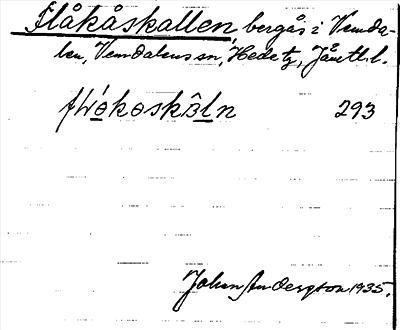 Flåkåskallen, bergås i Vemda-
len, Vemdalens sn, Hede tg, Jämtl. l.
293
Johan Andersson 1935.